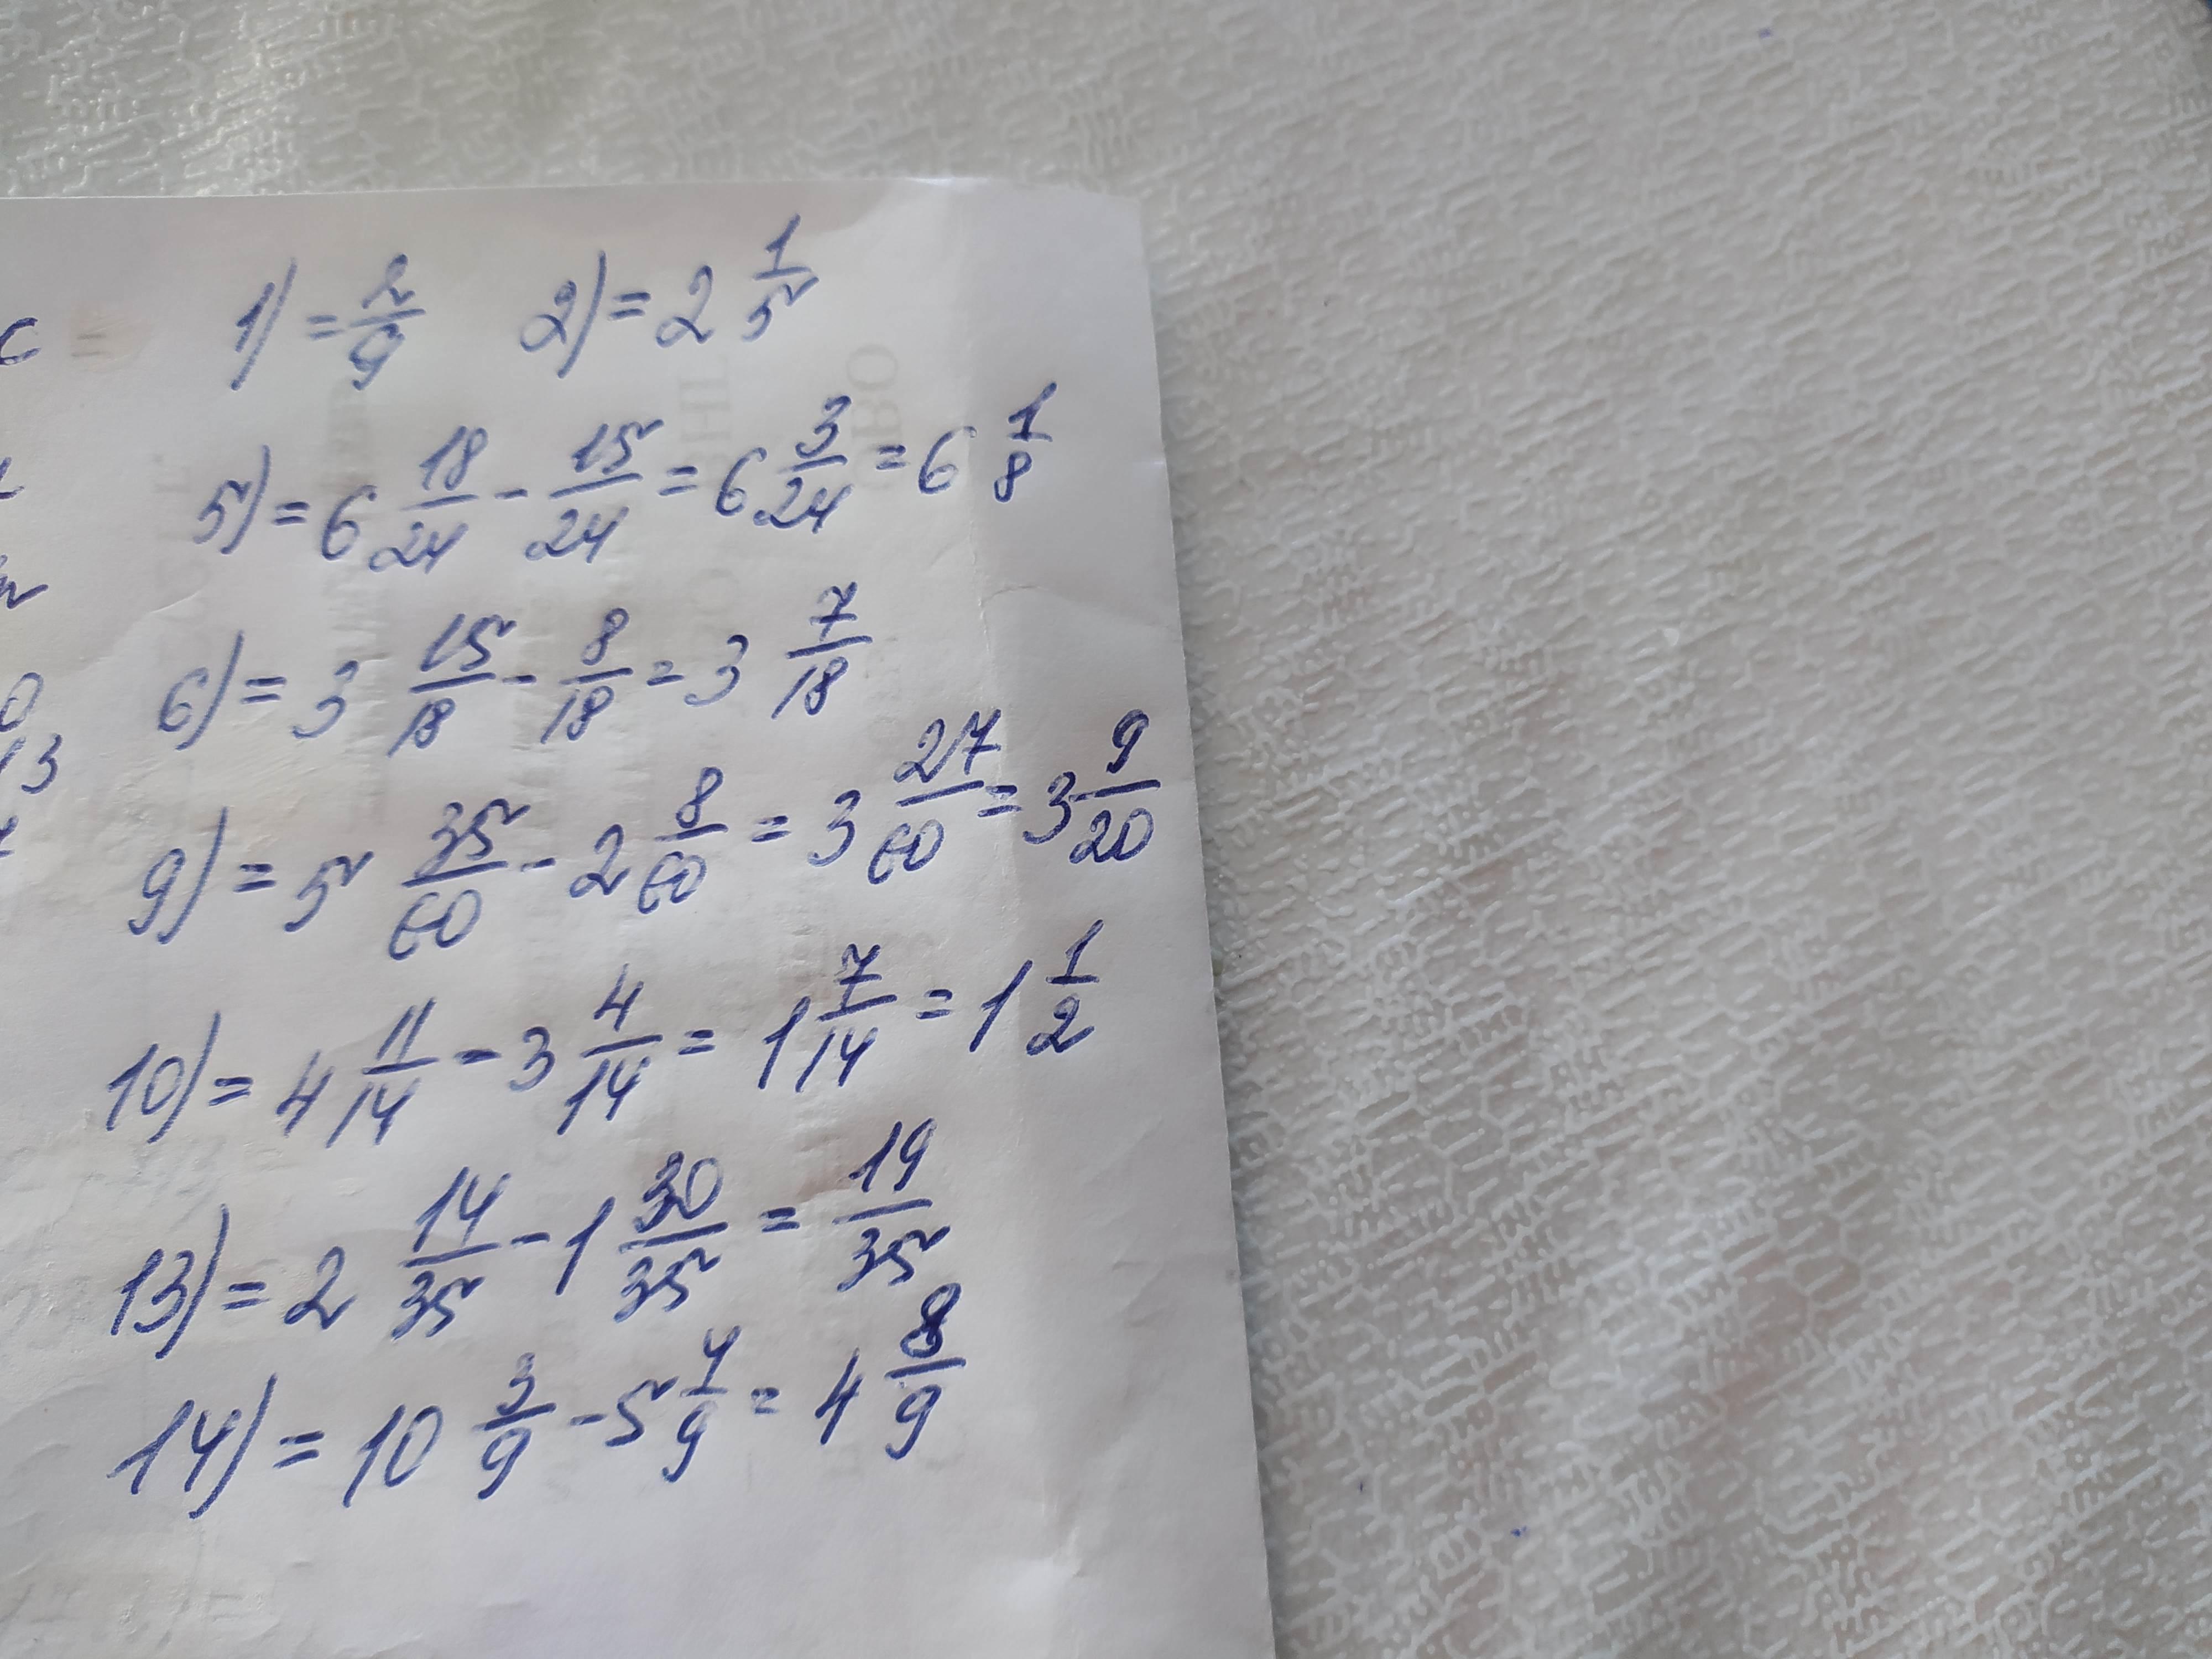 1) = 2/9 2) = 2 1/5
5) = 6 18/24 - 15/24 = 6 3/24 = 6 1/8
6) = 3 15/18 - 8/18 = 3 7/18
9) = 5 35/60 - 2 8/60 = 3 27/60 = 3 9/20
10) = 4 11/14 - 3 4/14 = 1 7/14 = 1 1/2
13) = 2 14/35 - 1 30/35 = 19/35
14) = 10 3/9 - 5 4/9 = 4 8/9